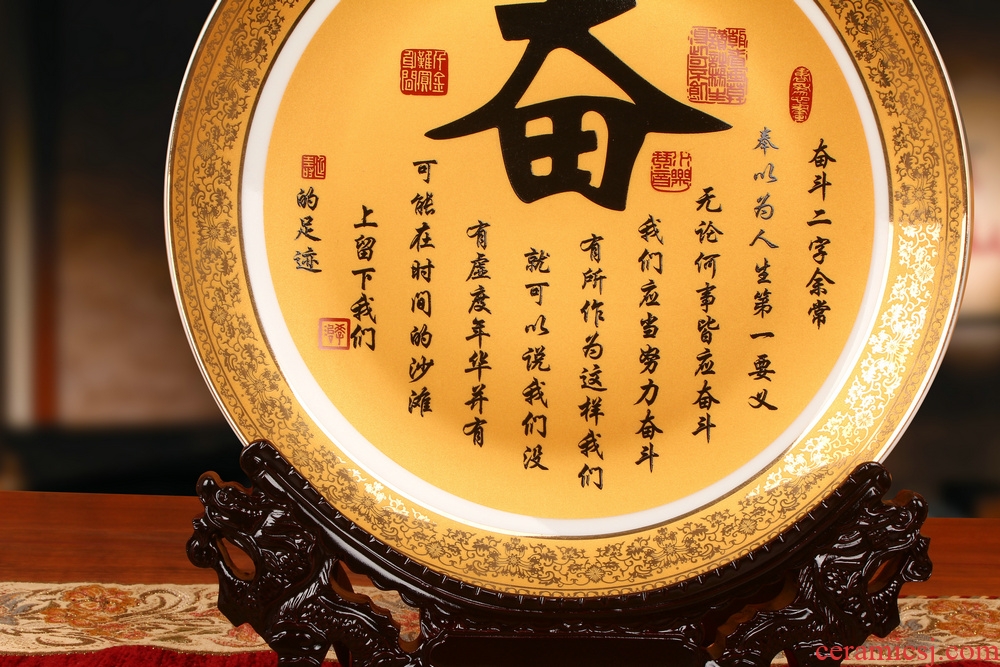 奋
奋斗二字余常
奉以为人生第一要义
无论何事皆应奋斗
我们应当努力奋斗
有所作为这样我们
就可以说我们没
有虚度年华并有
可能在时间的沙滩
上留下我们
的足迹
千金难买自闲
ceramicsj.com